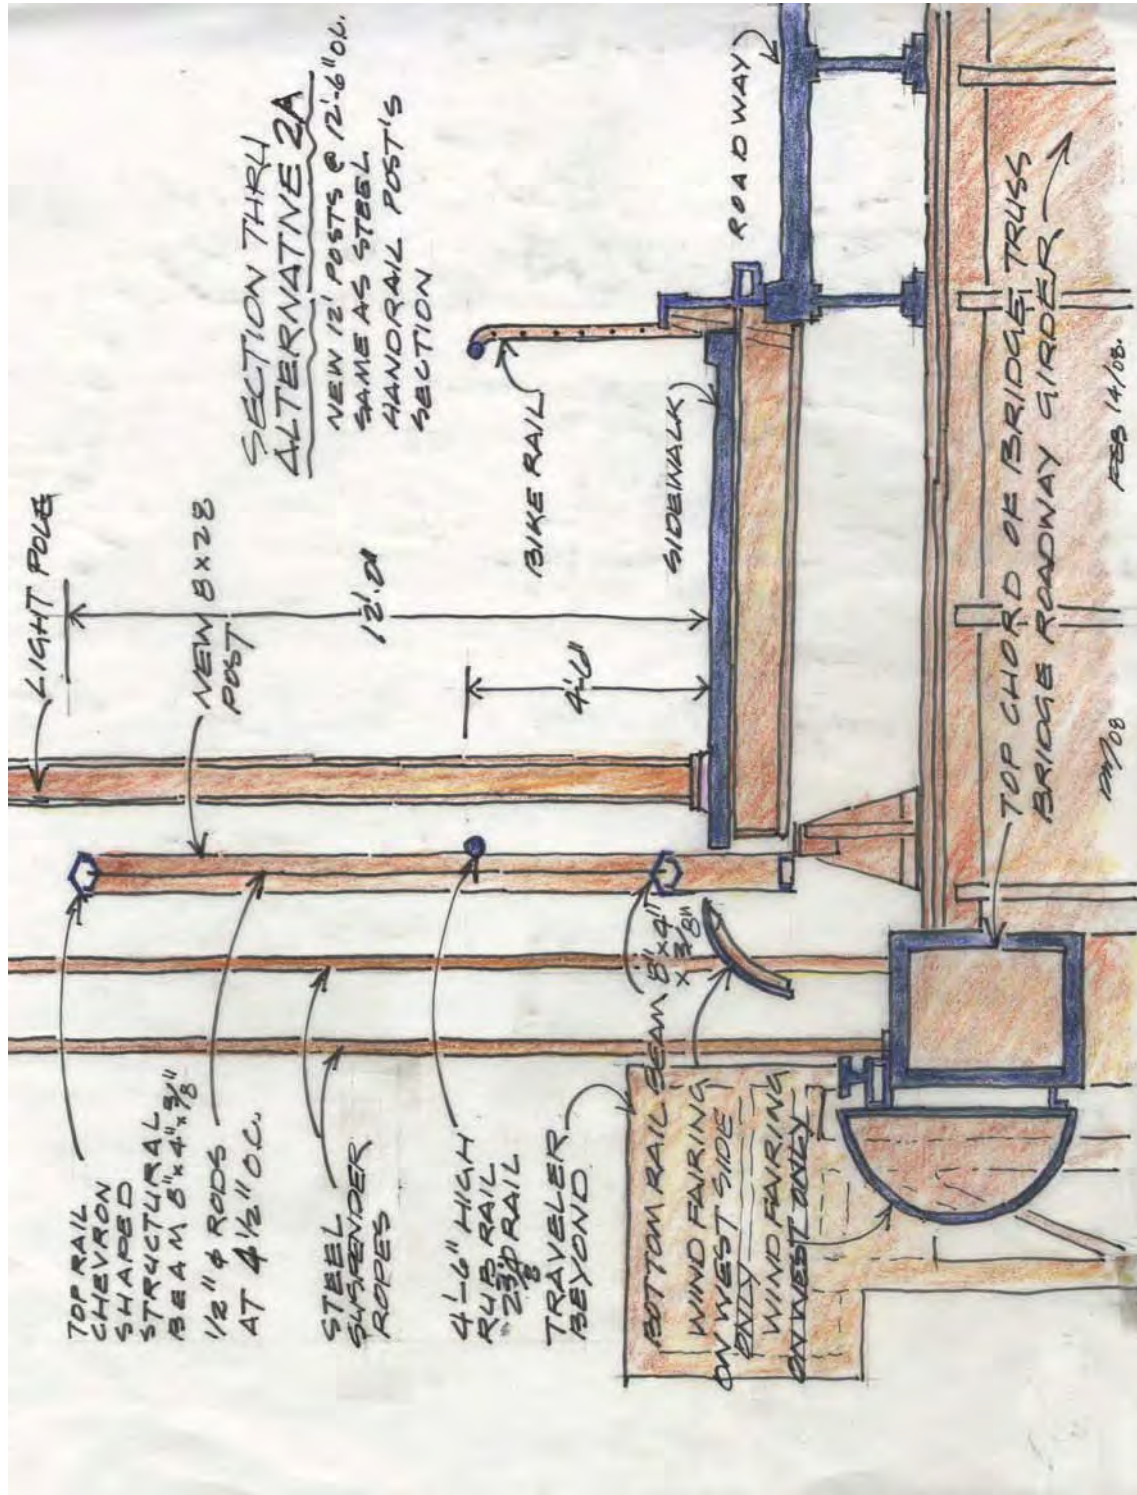 SECTION THRU
ALTERNATIVE 2A
NEW 12' POSTS @ 12'-6" O.C.
SAME AS STEEL
HANDRAIL POST'S
SECTION
LIGHT POLE
NEW 8 X 28
POST
12'-0"
4'-6"
BIKE RAIL
SIDEWALK
ROADWAY
TOP RAIL
CHEVRON
SHAPED
STRUCTURAL
BEAM 8"x4"x3/8"
1/2" ϕ RODS
AT 4 1/2" O.C.
STEEL
SUSPENDER
ROPES
4'-6" HIGH
RUB RAIL
2 3/8" ϕ RAIL
TRAVELER
BEYOND
BOTTOM RAIL BEAM 8"x4"
x 3/8"
WIND FAIRING
ON WEST SIDE
ONLY
WIND FAIRING
ON WEST ONLY
TOP CHORD OF BRIDGE TRUSS
BRIDGE ROADWAY GIRDER
FEB 14/08.